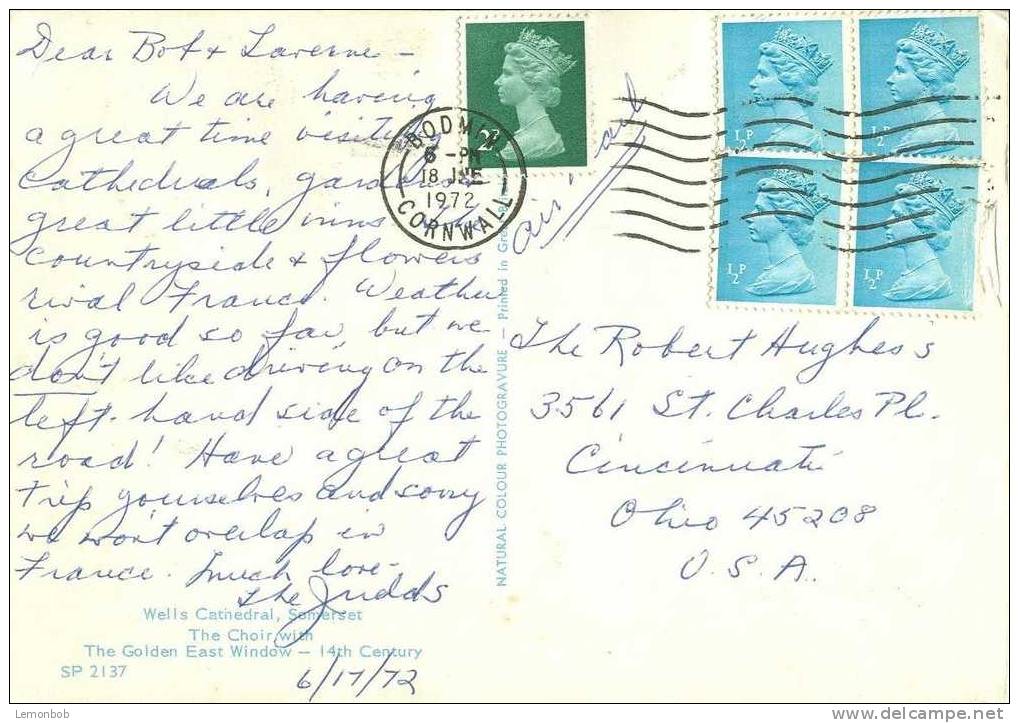 Dear Bob & Laverne -
We are having
a great time visiting
Cathedrals, gardens
great little inns
countryside & flowers
rival France. Weather
is good so far, but we
don't like driving on the
left-hand side of the
road! Have a great
trip yourselves and sorry
we won't overlap in
France. Much love -
the Judds
Wells Cathedral, Somerset
The Choir with
The Golden East Window — 14th Century
SP 2137
6/17/72
NATURAL COLOUR PHOTOGRAVURE — Printed in Gre
BODMIN
6 - PM
18 JNE
1972
CORNWALL
air mail
½P
½P
½P
½P
The Robert Hughes's
3561 St. Charles Pl.
Cincinnati
Ohio 45208
U.S.A.
Lemonbob
http://www.delcampe.net